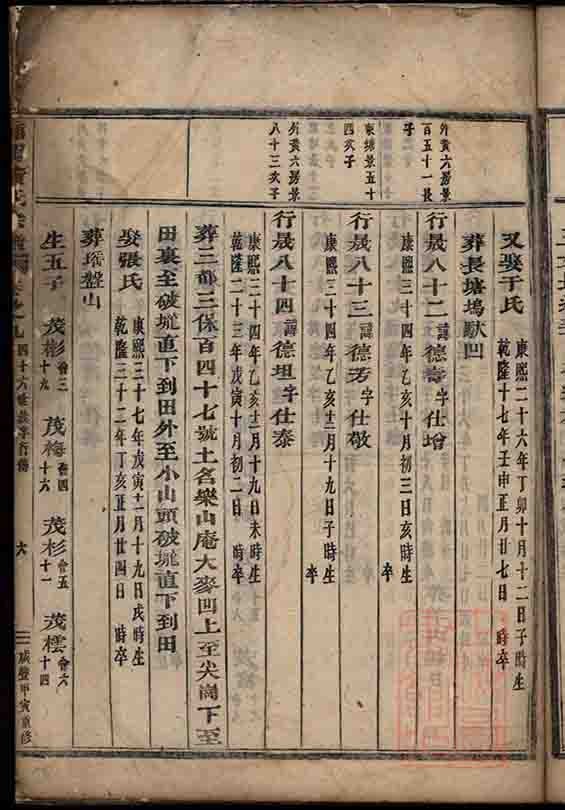 又娶于氏 康熙二十六年丁卯十月十二日子時生
乾隆十七年壬申正月廿七日 時卒
葬長塘塢猷凹
外黃六房景
百五十一長
子
行晟八十二諱德壽字仕增 康熙三十四年乙亥十月初三日亥時生
卒
東塘景五十
四次子
行晟八十三諱德芳字仕敬 康熙三十四年乙亥十二月十九日子時生
卒
外黃六房景
八十三次子
行晟八十四諱德坦字仕泰 康熙三十四年乙亥十二月十九日未時生
乾隆二十三年戊寅十月初二日 時卒
葬二都三保百四十七號土名樂山庵大麥凹上至尖崗下至
田裏至破壠直下到田外至小山頭破壠直下到田
娶張氏 康熙三十七年戊寅十二月十九日戌時生
乾隆三十二年丁亥正月廿四日 時卒
葬瑶盤山
生五子 茂彬 卷三 十九 茂梅 卷四 十六 茂杉 卷五 十一 茂橒 卷六 十四
六
咸豐甲寅重修